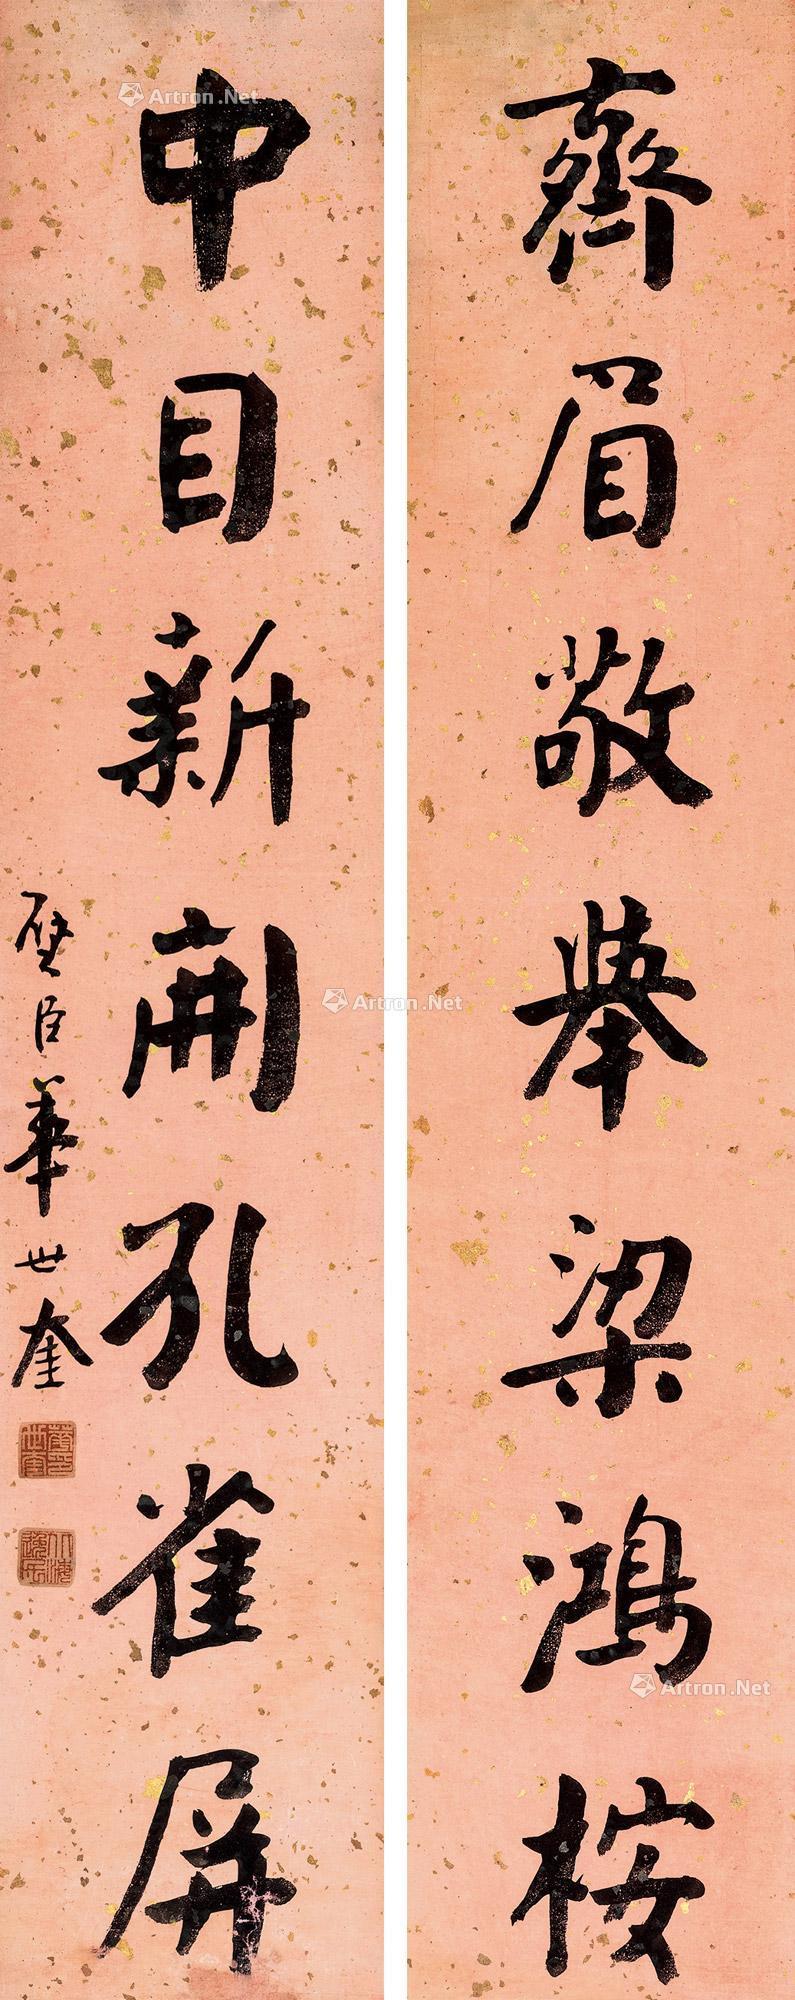 齊眉敬舉梁鴻桉
中目新開孔雀屏
璧臣華世奎
Artron.Net
Artron.Net
Artron.Net